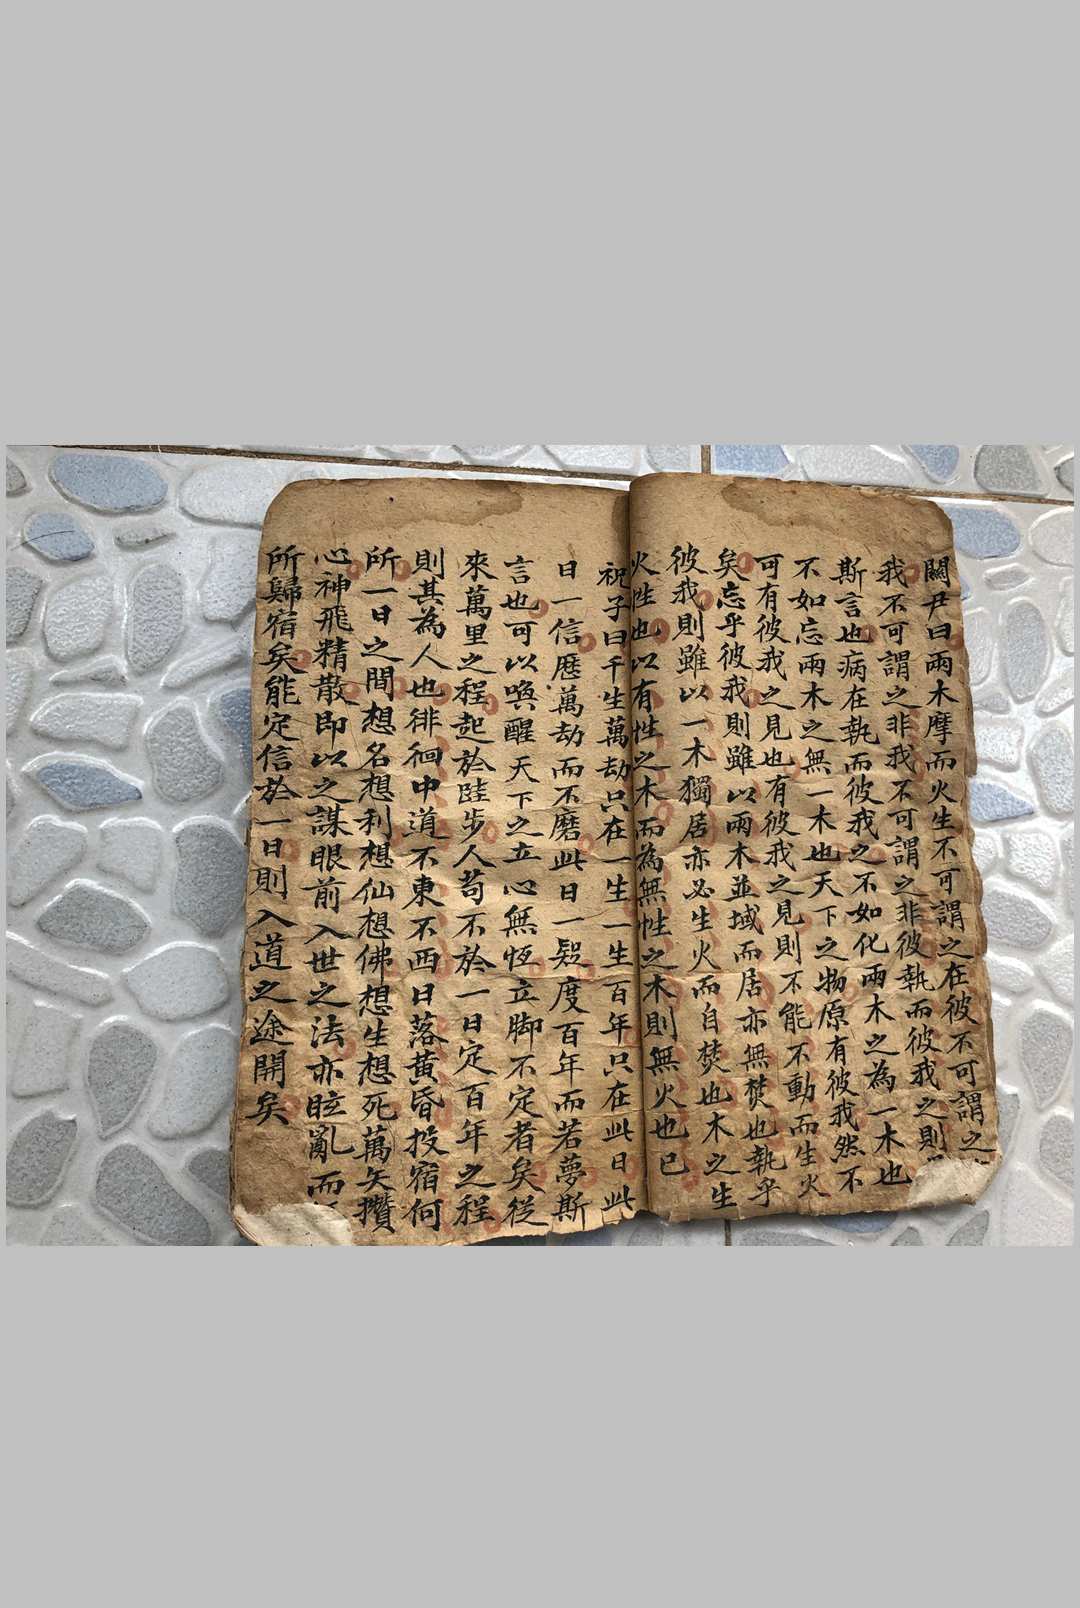 關尹曰兩木摩而火生不可謂之在彼不可謂之
我不可謂之非我不可謂之非彼執而彼我之則
斯言也病在執而彼我之不如化兩木之為一木也
不如忘兩木之無一木也天下之物原有彼我然不
可有彼我之見也有彼我之見則不能不動而生火
矣忘乎彼我則雖以兩木並域而居亦無焚也執乎
彼我則雖以一木獨居亦必生火而自焚也木之生
火性也以有性之木而為無性之木則無火也已
祝子曰千生萬劫只在一生一生百年只在此日此
日一信歷萬劫而不磨此日一疑度百年而若夢斯
言也可以喚醒天下之立心無恆立脚不定者矣從
來萬里之程起於跬步人苟不於一日定百年之程
則其為人也徘徊中道不東不西日落黃昏投宿何
所一日之間想名想利想仙想佛想生想死萬矢攢
心神飛精散即以之謀眼前入世之法亦眩亂而
所歸宿矣能定信於一日則入道之途開矣